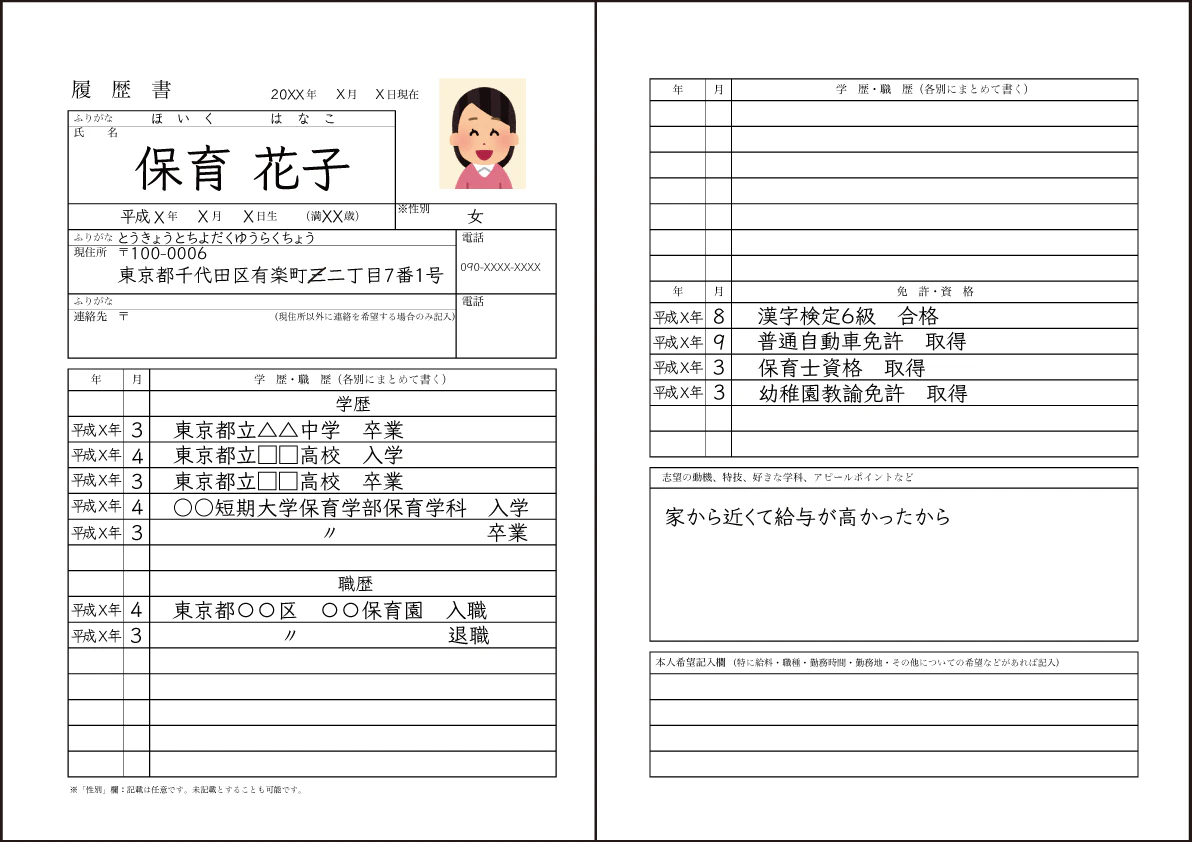 履歴書
20XX年 X月 X日現在
ふりがな ほいく はなこ
氏 名
保育 花子
平成X年 X月 X日生 (満XX歳)
※性別 女
ふりがな とうきょうとちよだくゆうらくちょう
電話
現住所 〒100-0006
090-XXXX-XXXX
東京都千代田区有楽町三二丁目7番1号
ふりがな
電話
連絡先 〒 (現住所以外に連絡を希望する場合のみ記入)
年 月 学 歴・職 歴(各別にまとめて書く)
学歴
平成X年 3 東京都立△△中学 卒業
平成X年 4 東京都立□□高校 入学
平成X年 3 東京都立□□高校 卒業
平成X年 4 ○○短期大学保育学部保育学科 入学
平成X年 3 〃 卒業
職歴
平成X年 4 東京都○○区 ○○保育園 入職
平成X年 3 〃 退職
※「性別」欄:記載は任意です。未記載とすることも可能です。
年 月 学 歴・職 歴(各別にまとめて書く)
年 月 免 許・資 格
平成X年 8 漢字検定6級 合格
平成X年 9 普通自動車免許 取得
平成X年 3 保育士資格 取得
平成X年 3 幼稚園教諭免許 取得
志望の動機、特技、好きな学科、アピールポイントなど
家から近くて給与が高かったから
本人希望記入欄 (特に給料・職種・勤務時間・勤務地・その他についての希望などがあれば記入)